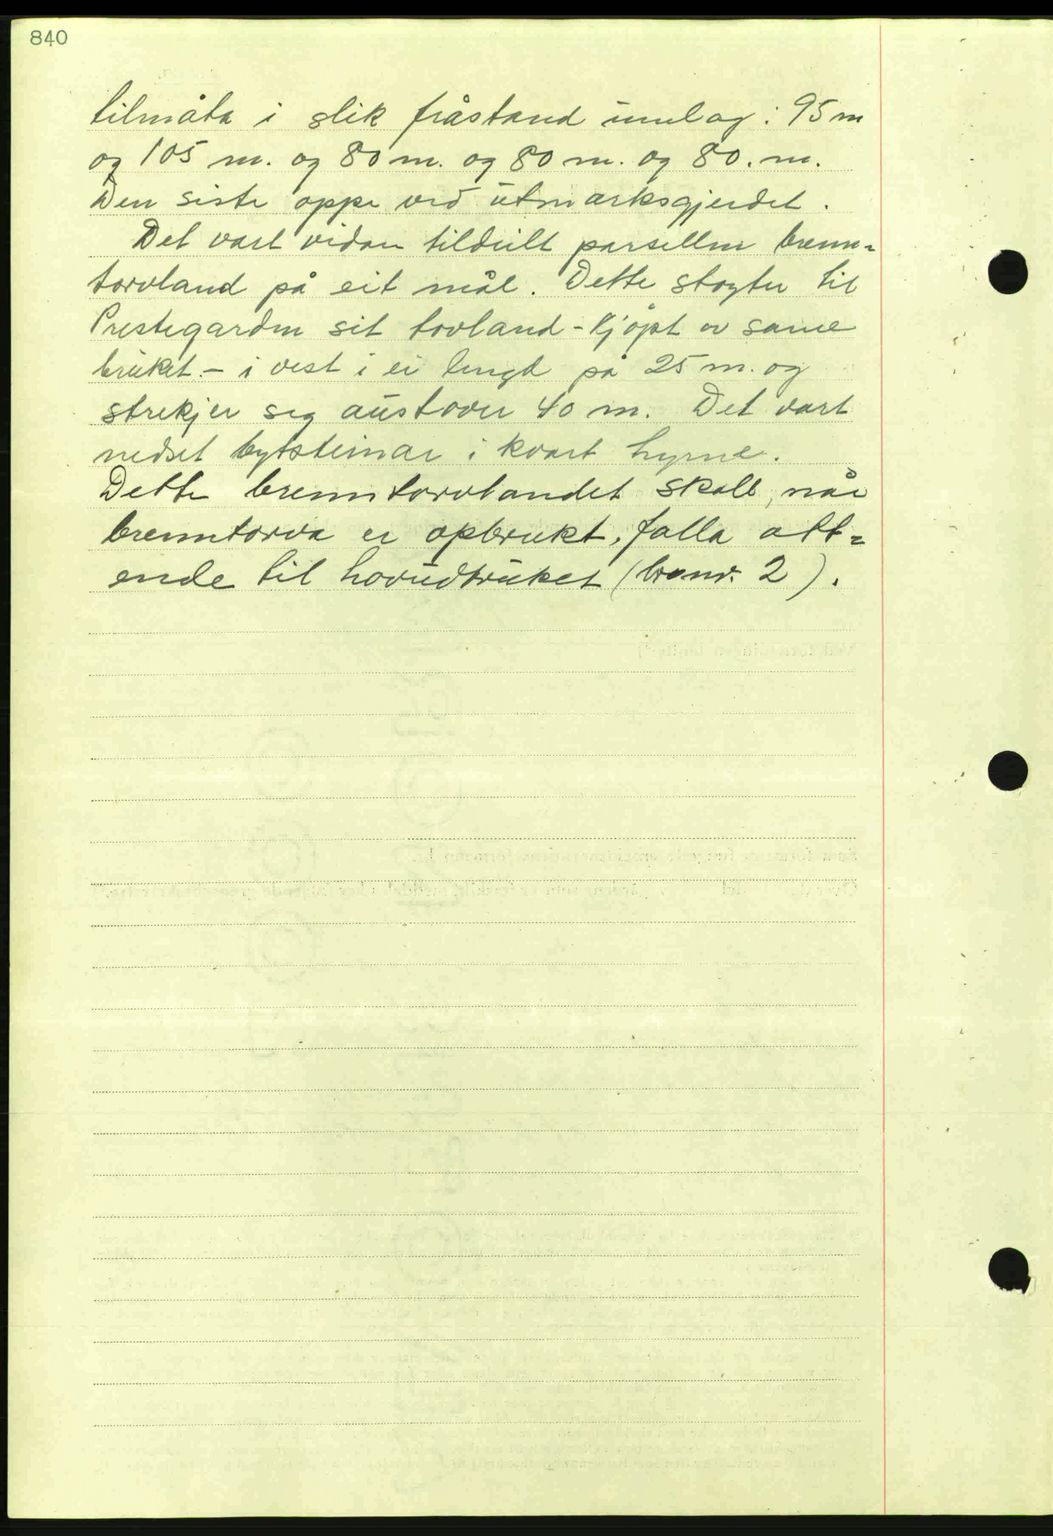 840
tilmåta i slik fråstand innlag: 95 m
og 105 m. og 80 m. og 80 m. og 80. m.
Den siste oppe ved utmarksgjerdet.
Det vart vidare tildeilt parsellen brenn=
torvland på eit mål. Dette støyter til
Prestegarden sit tovland - kjøpt av same
bruket - i vest i ei lengd på 25 m. og
strekjer seg austover 40 m. Det vart
nedset bytsteinar i kvart hyrne.
Dette brenntorvlandet skall, når
brenntorva er opbrukt, falla att=
ende til hovudbruket (br.nr. 2).